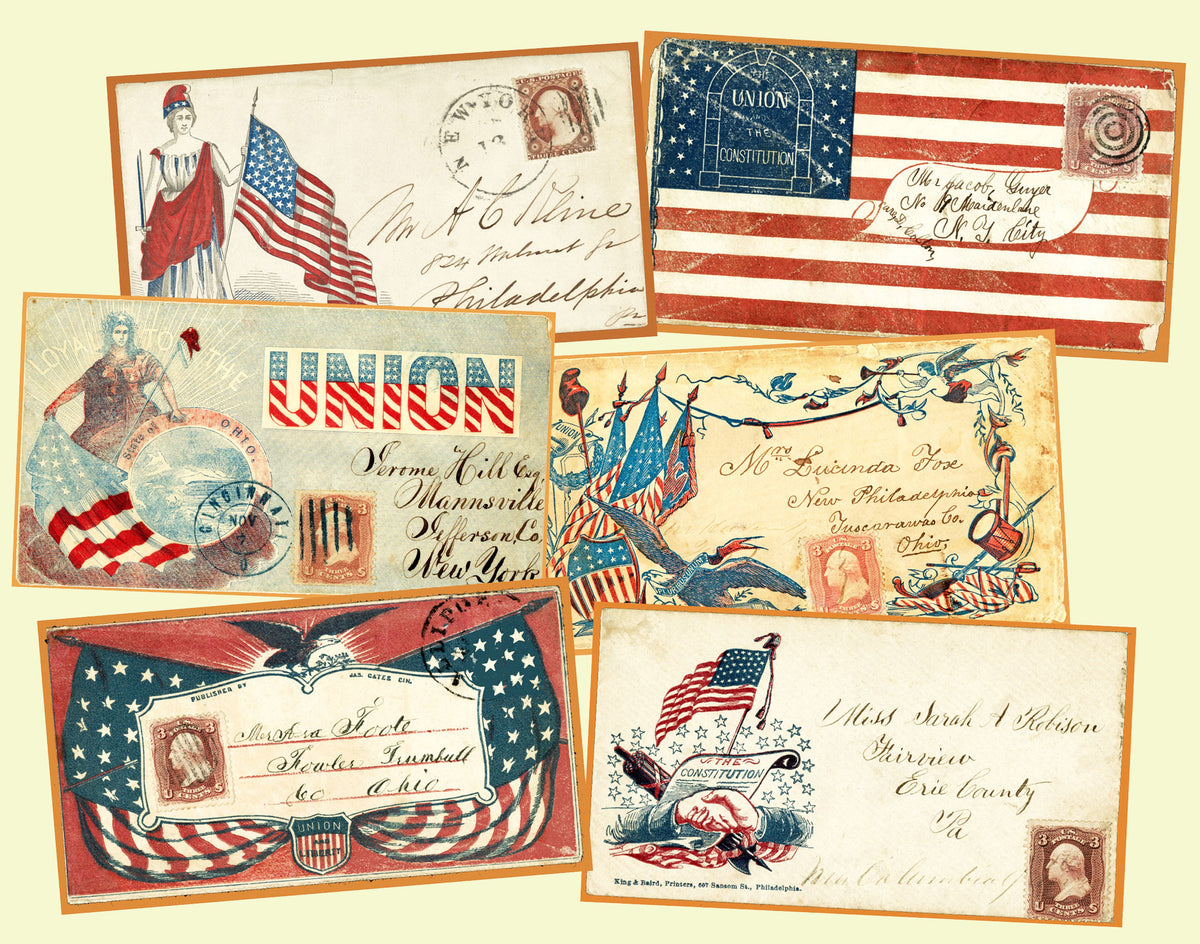 NEW-YO
U.S. POSTAGE
THREE CENTS
Mr A C Kline
824 Walnut St
Philadelphia
Pa
THE
UNION
AND
THE
CONSTITUTION
3 3
U THREE CENTS S
Mr Jacob
No Maidenlane
N. Y. City
LOYAL TO THE
State of OHIO.
UNION
CINCINNATI
NOV
3
U THREE CENTS S
Jerome Hill Esq
Mannsville
Jefferson, Co,
New York
UNION
Mrs Lucinda Fox
New Philadelphia
Tuscarawas Co.
Ohio,
3 3
U THREE CENTS S
PUBLISHED BY JAS. GATES CIN.
3 U.S. POSTAGE 3
U THREE CENTS S
Foote
Fowler Trumbull
Co Ohio
UNION
AND
LIBERTY
THE
CONSTITUTION
King & Baird, Printers, 607 Sansom St., Philadelphia.
Miss Sarah A Robison
Fairview
Erie County
Pa
3 U.S. POSTAGE 3
U THREE CENTS S